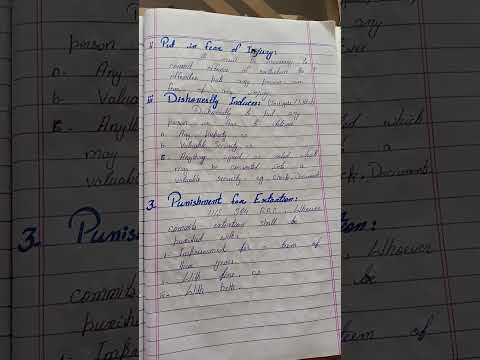 ii Put in fear of Injury:
It must be necessary to
commit offence of extortion to
offender put any person in
fear of any injury.
iii Dishonestly Induces:
Dishonestly to put any
person in fear to deliver
a. Any property or
b. Valuable Security or
c. Anything signed or sealed which
may be converted into a
valuable security eg Check, Document
3. Punishment for Extortion:
U/S 384 P.P.C, Whoever
commits extortion shall be
punished with:
i. Imprisonment for a term of
three years.
ii. With fine, or
iii. With both.